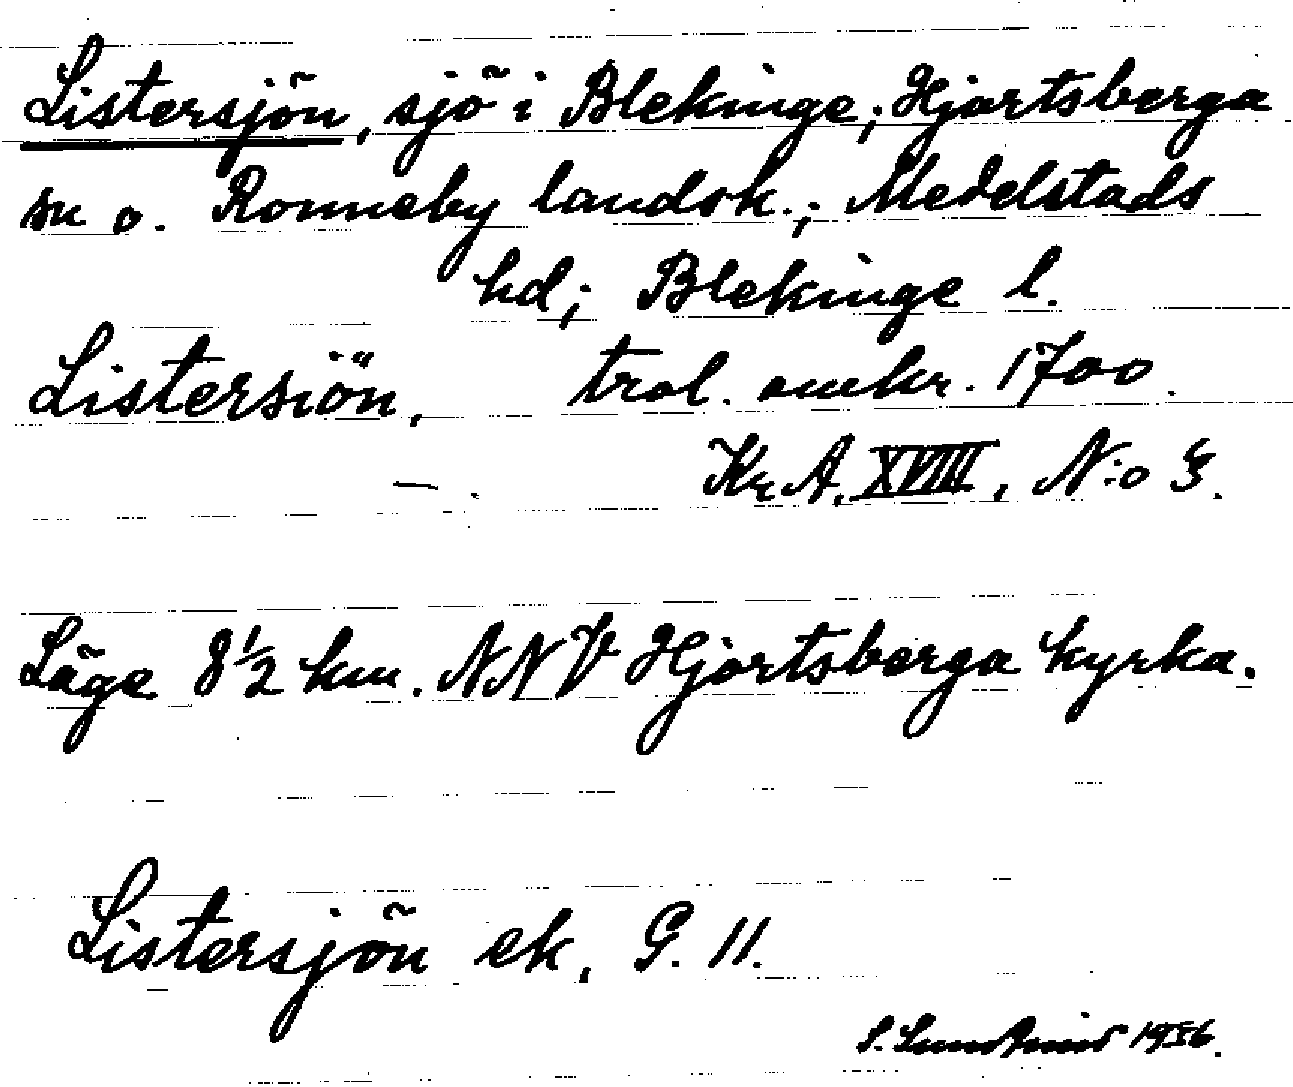 Listersjön, sjö i Blekinge; Hjortsberga
sn o. Ronneby landsk.; Medelstads
hd; Blekinge l.
Listersiön, trol. omkr. 1700.
— . Kr. A. XVIII, N:o 3.
Läge 8 1/2 km. NNV Hjortsberga kyrka.
Listersjön ek. G. 11.
S. 19